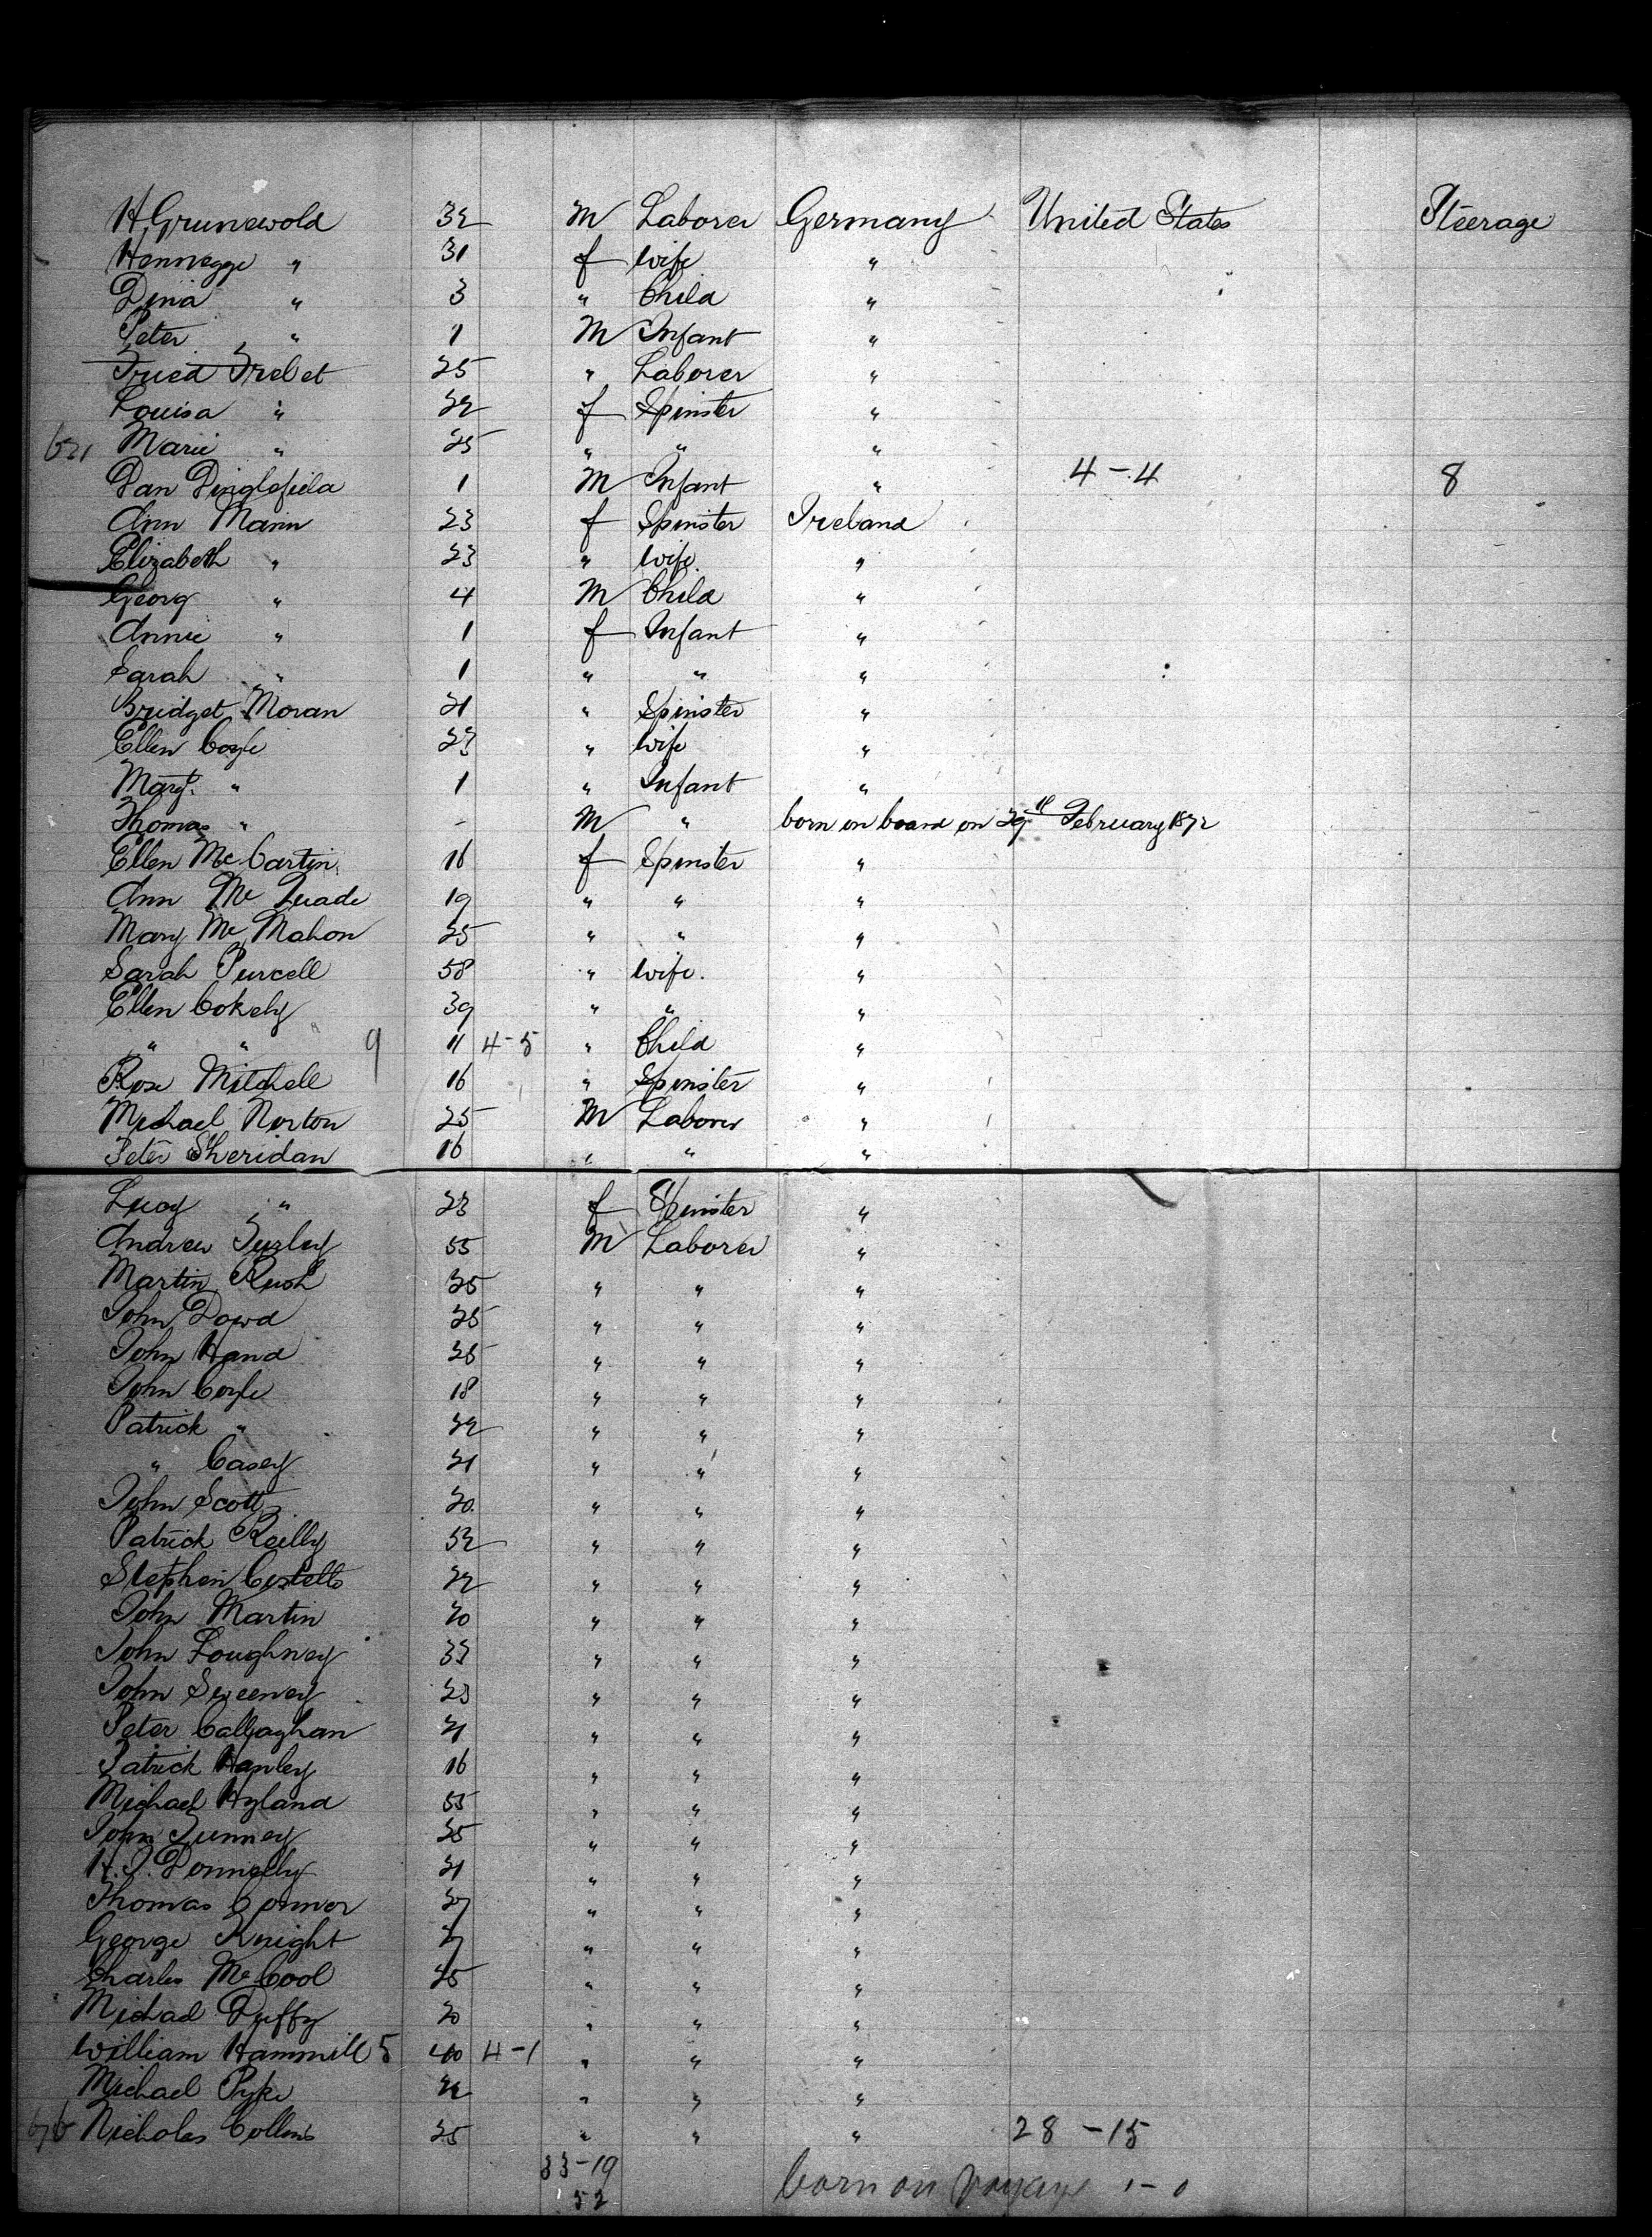 H Grunewold 32 M Laborer Germany United States Steerage
Hennegge " 31 f wife "
Dina " 3 " Child "
Peter " 1 M Infant "
25 " Laborer "
Louisa " 22 f Spinster "
Marie " 25 " " "
Dan Dinglefield 1 M Infant " 4-4 8
Ann Mann 23 f Spinster Ireland
Elizabeth " 23 " wife "
Georg " 4 M Child "
Annie " 1 f Infant "
Sarah " 1 " " "
Bridget Moran 21 " Spinster "
Ellen Coyle " wife "
Margt. " 1 " Infant "
Thomas " - M " born on board on 29th February 1872
Ellen McCartin 16 f Spinster "
Ann McQuade 19 " " "
Mary McMahon 25 " " "
Sarah Purcell 58 " wife. "
Ellen Cokely 39 " " "
" " 9 11 4-5 " Child "
Rose Mitchell 16 " Spinster "
Michael Norton 25 M Laborer "
Peter Sheridan 16 " " "
Lucy " 23 f Spinster "
Andrew Turley 55 M Laborer "
Martin Rush 25 " " "
John Dowd 25 " " "
John Hand 25 " " "
John Coyle 18 " " "
Patrick " 22 " " "
" Casey 21 " " "
John Scott 20 " " "
Patrick Reilly 52 " " "
Stephen Costello 22 " " "
John Martin 20 " " "
John Loughney 33 " " "
John Sweeney 23 " " "
Peter Callaghan 21 " " "
Patrick Hanley 16 " " "
Michael Hyland 55 " " "
John Tunney 25 " " "
H. J. Donnelly 21 " " "
Thomas Connor 27 " " "
George Knight " " "
Charles McCool 25 " " "
Michael Duffy 20 " " "
William Hammill 5 40 4-1 " " "
Michael Pyke 22 " " "
Nicholas Collins 25 " " " 28-15
33-19 born on voyage 1-0
52